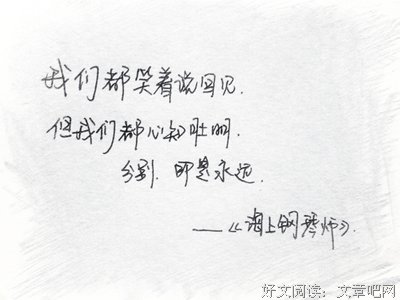 我们都笑着说回见.
但我们都心知肚明.
分别.即是永远.
——《海上钢琴师》.
好文阅读：文章吧网